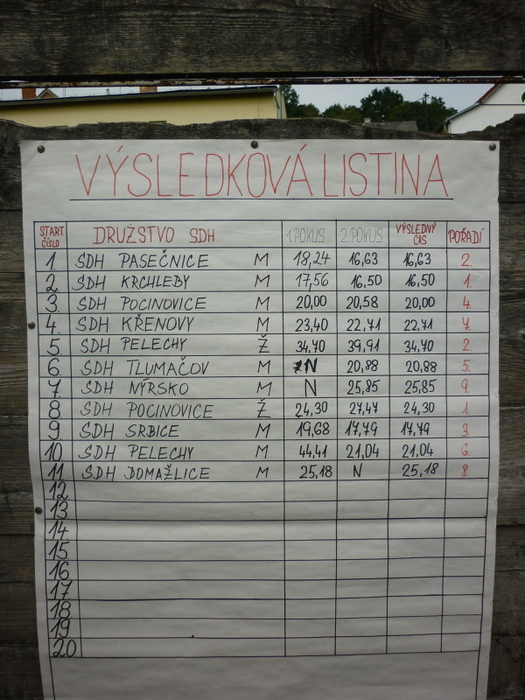 VÝSLEDKOVÁ LISTINA
START ČÍSLO DRUŽSTVO SDH 1.POKUS 2.POKUS VÝSLEDNÝ ČAS POŘADÍ
1. SDH PASEČNICE M 18,24 16,63 16,63 2.
2. SDH KRCHLEBY M 17,56 16,50 16,50 1.
3. SDH POCINOVICE M 20,00 20,58 20,00 4.
4. SDH KŘENOVY M 23,40 22,71 22,71 7.
5. SDH PELECHY Ž 34,70 39,91 34,70 2.
6. SDH TLUMAČOV M N 20,88 20,88 5.
7. SDH NÝRSKO M N 25,85 25,85 9.
8. SDH POCINOVICE Ž 24,30 27,47 24,30 1.
9. SDH SRBICE M 19,68 17,79 17,79 3.
10. SDH PELECHY M 44,41 21,04 21,04 6.
11. SDH DOMAŽLICE M 25,18 N 25,18 8.
12.
13.
14.
15.
16.
17.
18.
19.
20.